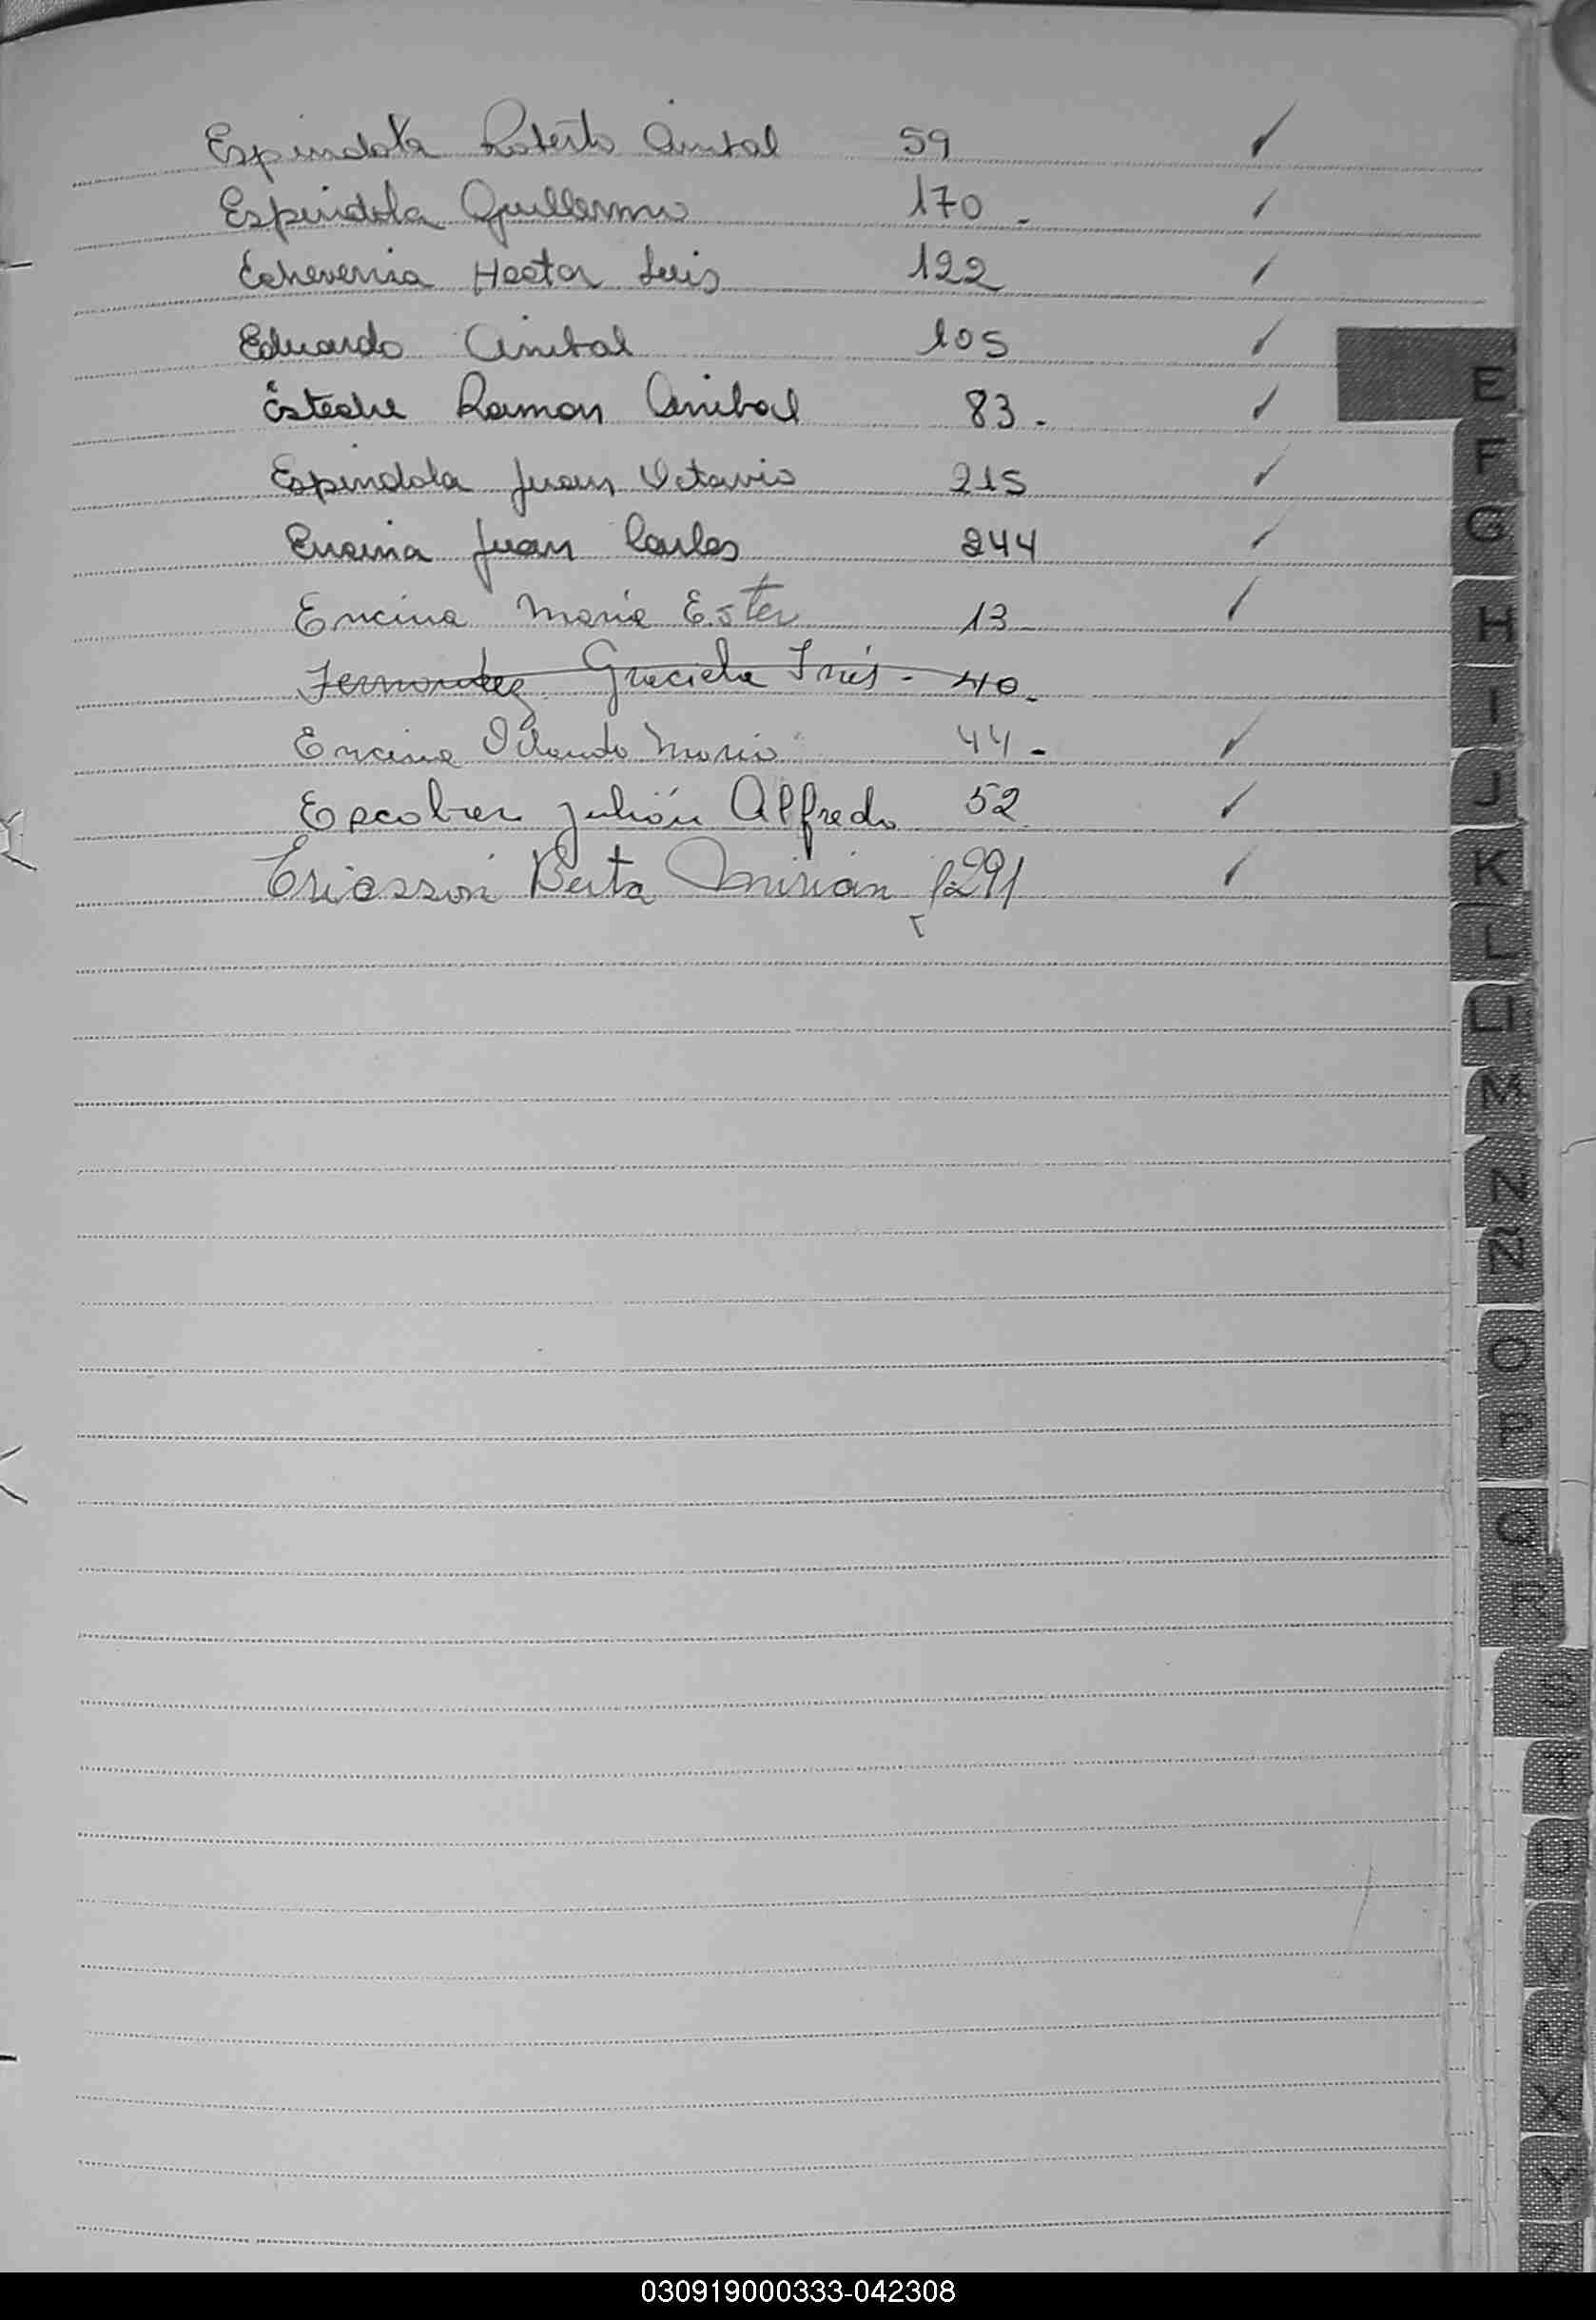 Espindola Roberto Anibal 59 ✓
Espindola Guillermo 170 - ✓
Echeverria Hector Luis 122 ✓
Eduardo Anibal 105 ✓
Esteche Ramon Anibal 83 - ✓
Espindola Juan Octavio 215 ✓
Encina Juan Carlos 244 ✓
Encina Maria Ester 13 ✓
Fernandez Graciela Inés - 40 -
Encina Orlando Mario 44 - ✓
Escobar Julián Alfredo 52 ✓
Ericsson Berta Mirian f291 ✓
E
F
G
H
I
J
K
L
Ll
M
N
Ñ
O
P
Q
R
S
T
U
V
X
Y
Z
030919000333-042308